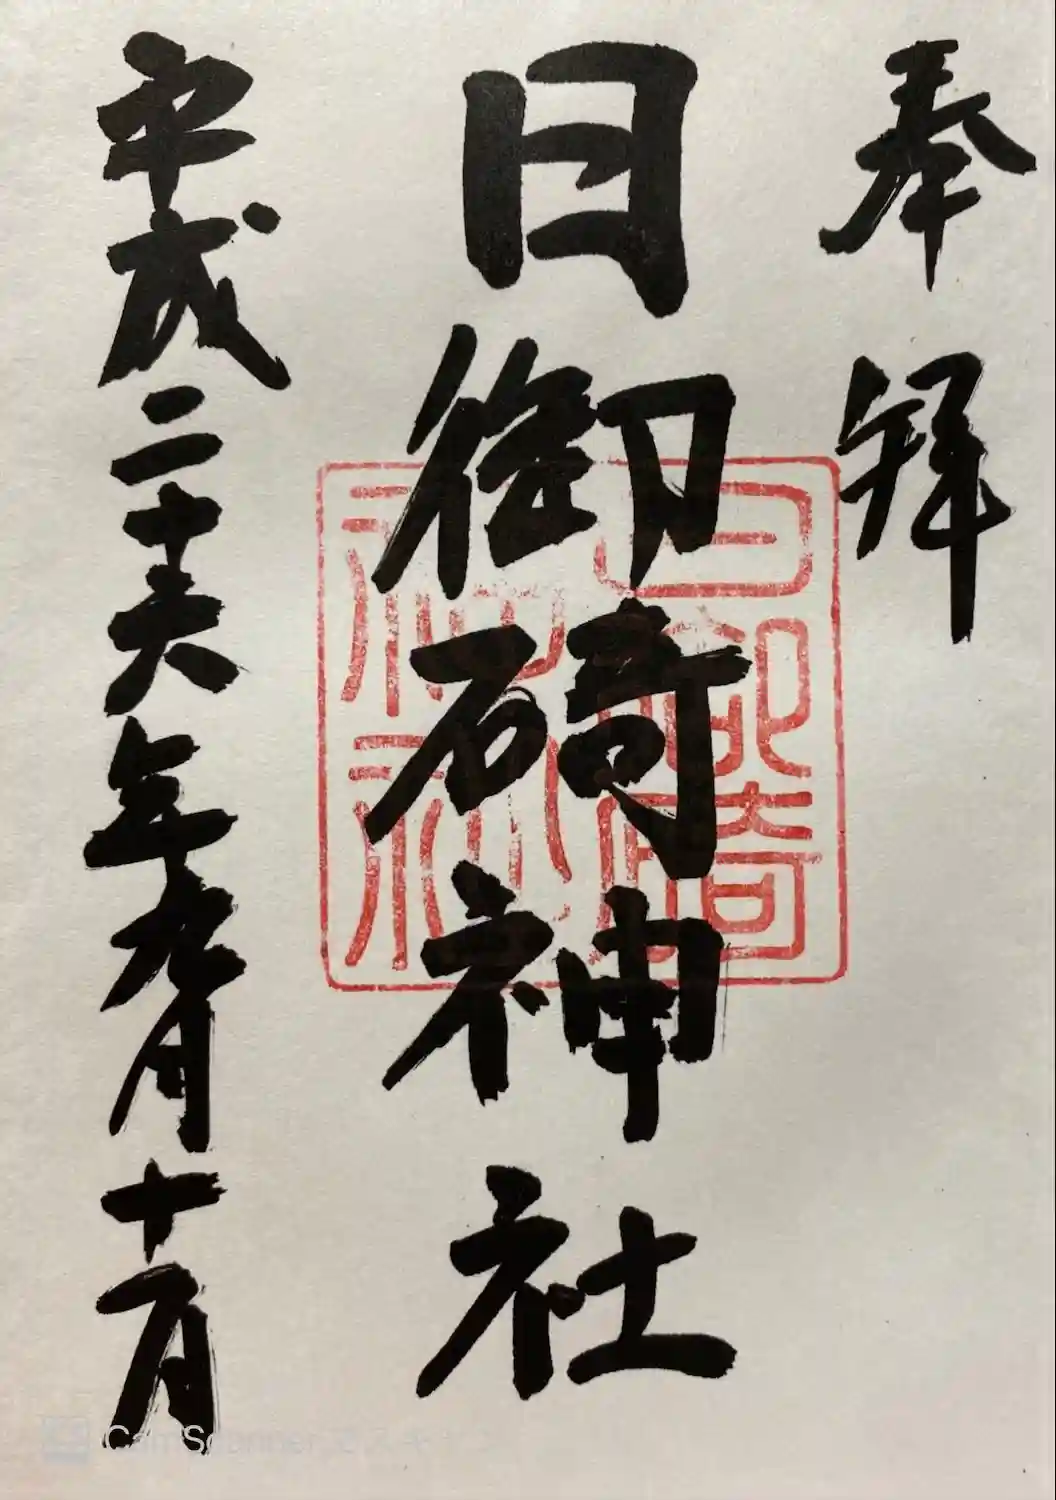 奉拝
日御碕神社
平成二十六年九月十一日
日御碕
神社
CamScanner でスキャン